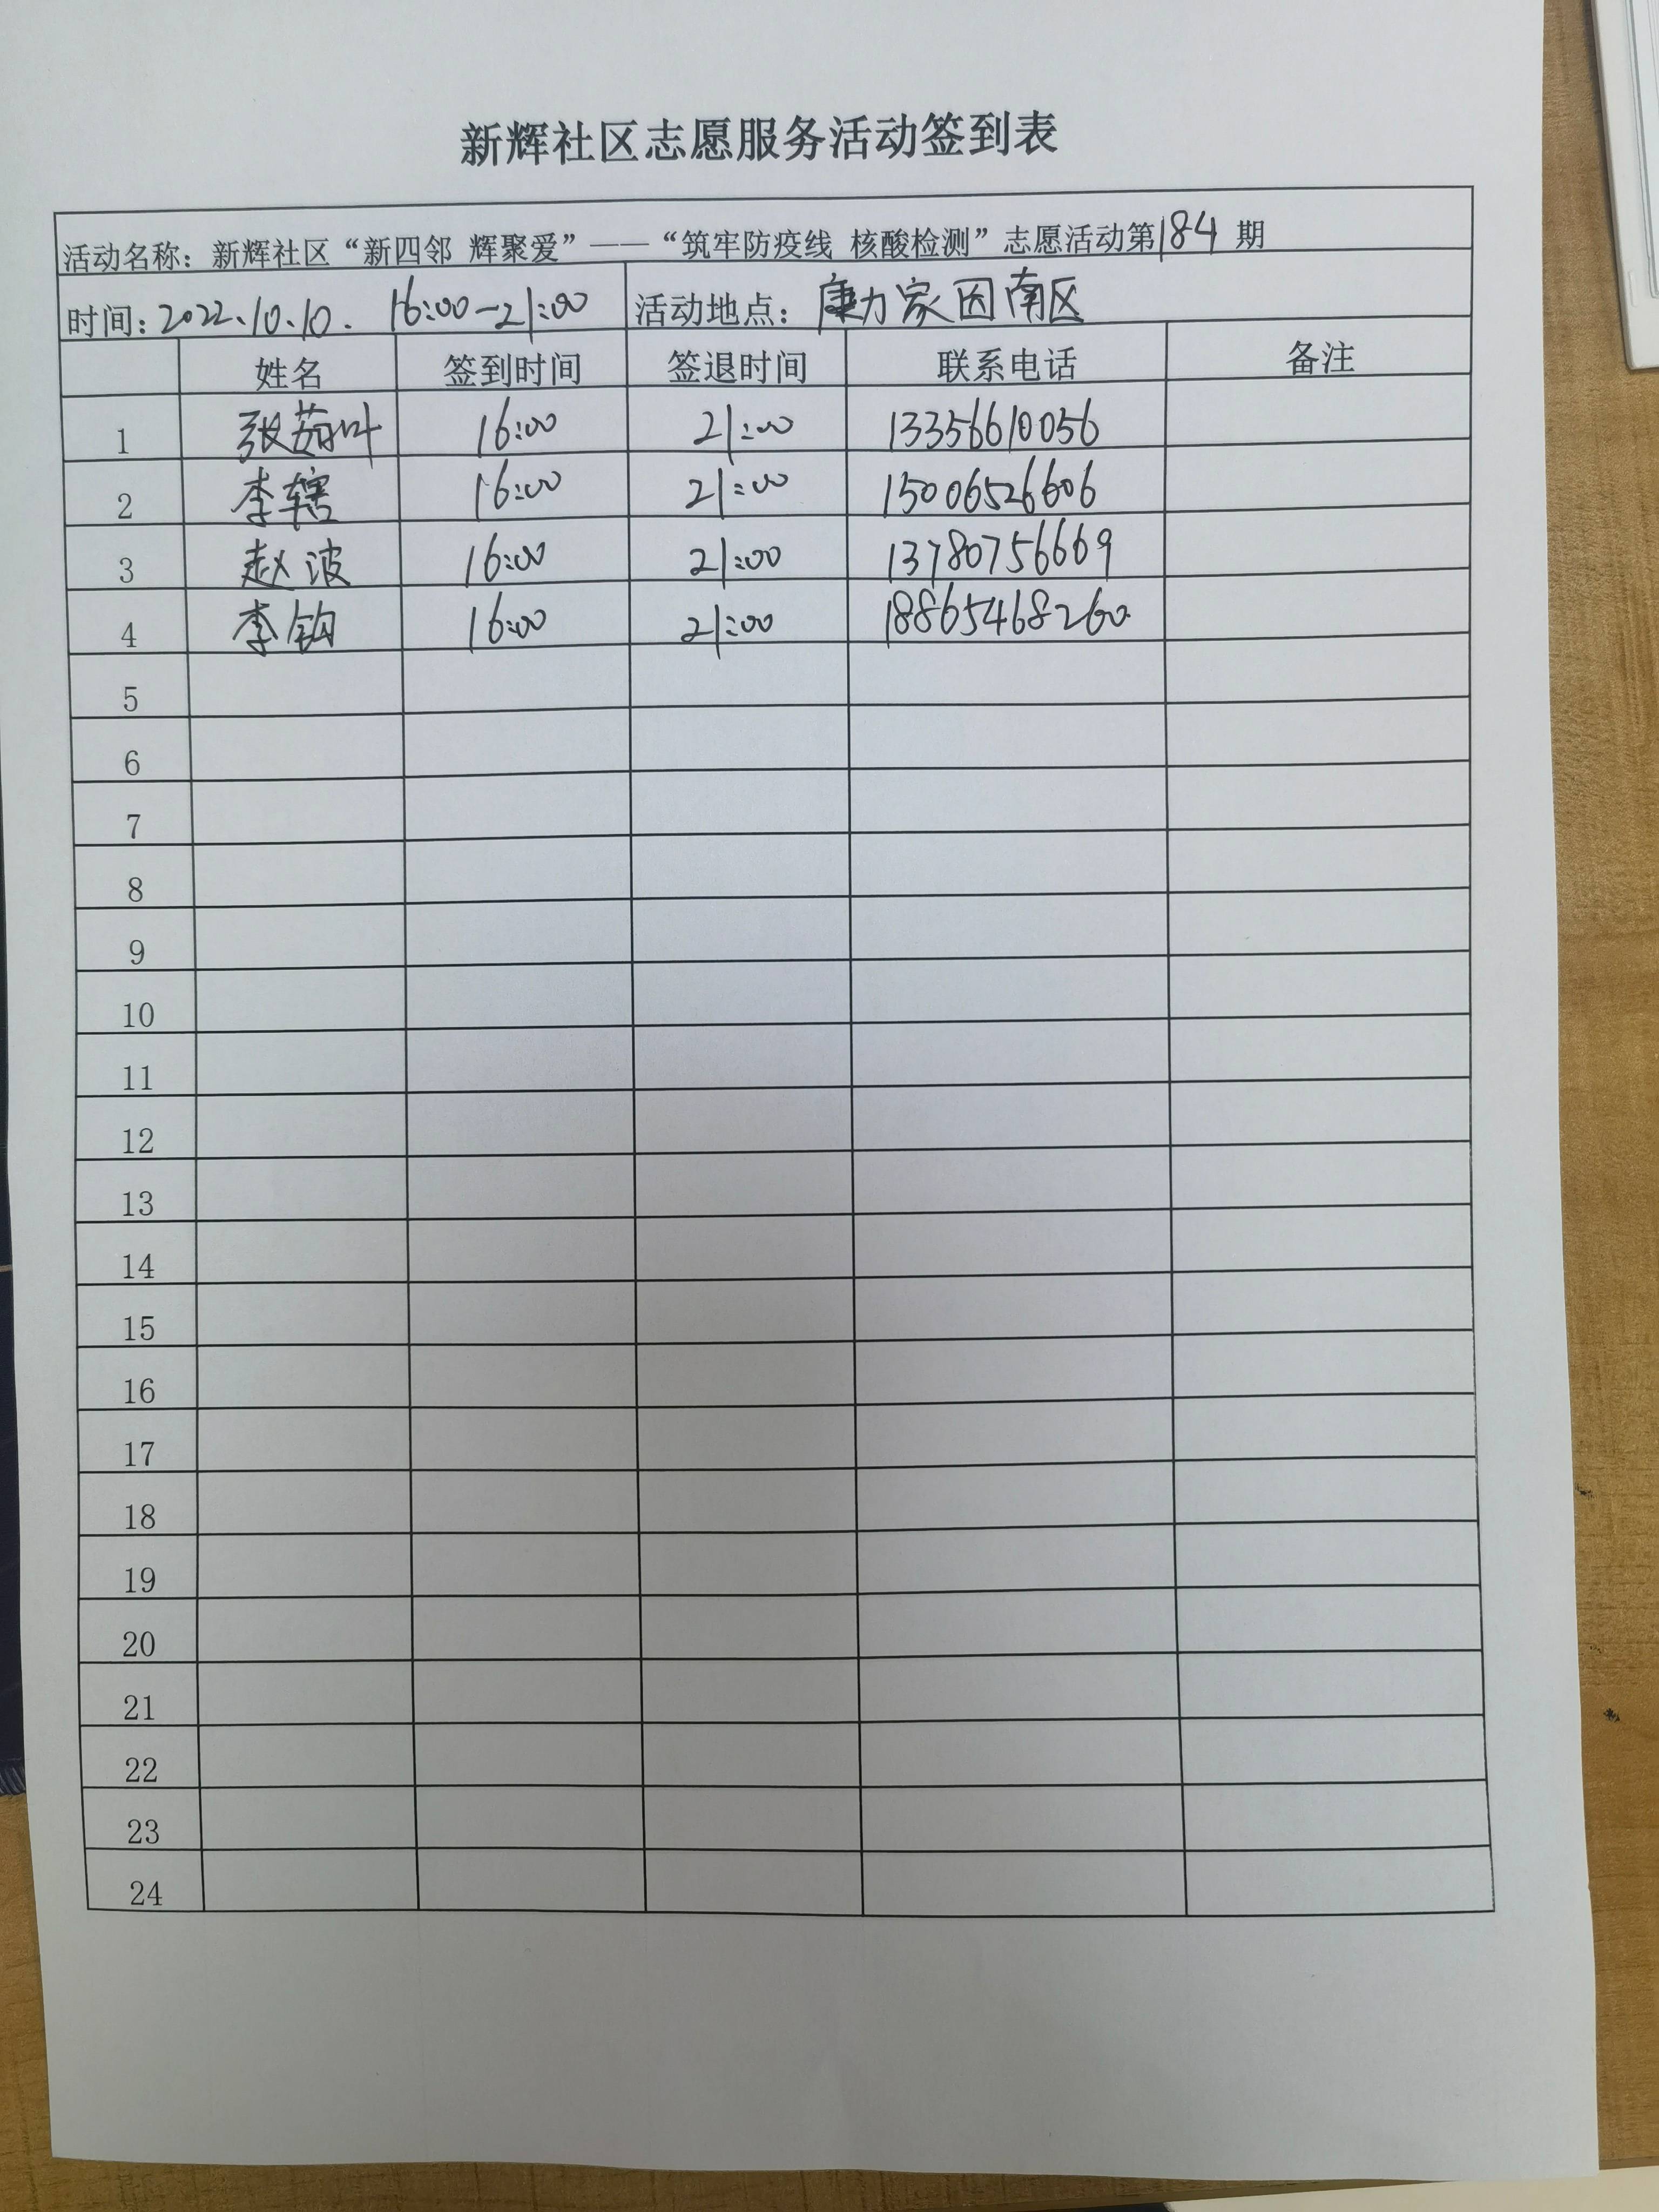 新辉社区志愿服务活动签到表
活动名称：新辉社区“新四邻 辉聚爱”——“筑牢防疫线 核酸检测”志愿活动第184期
时间：2022.10.10. 16:00-21:00 活动地点：康力家园南区
姓名 签到时间 签退时间 联系电话 备注
1 张茹叶 16:00 21:00 13356610056
2 李辖 16:00 21:00 15006526606
3 赵波 16:00 21:00 13780756669
4 李钧 16:00 21:00 18865468260
5
6
7
8
9
10
11
12
13
14
15
16
17
18
19
20
21
22
23
24